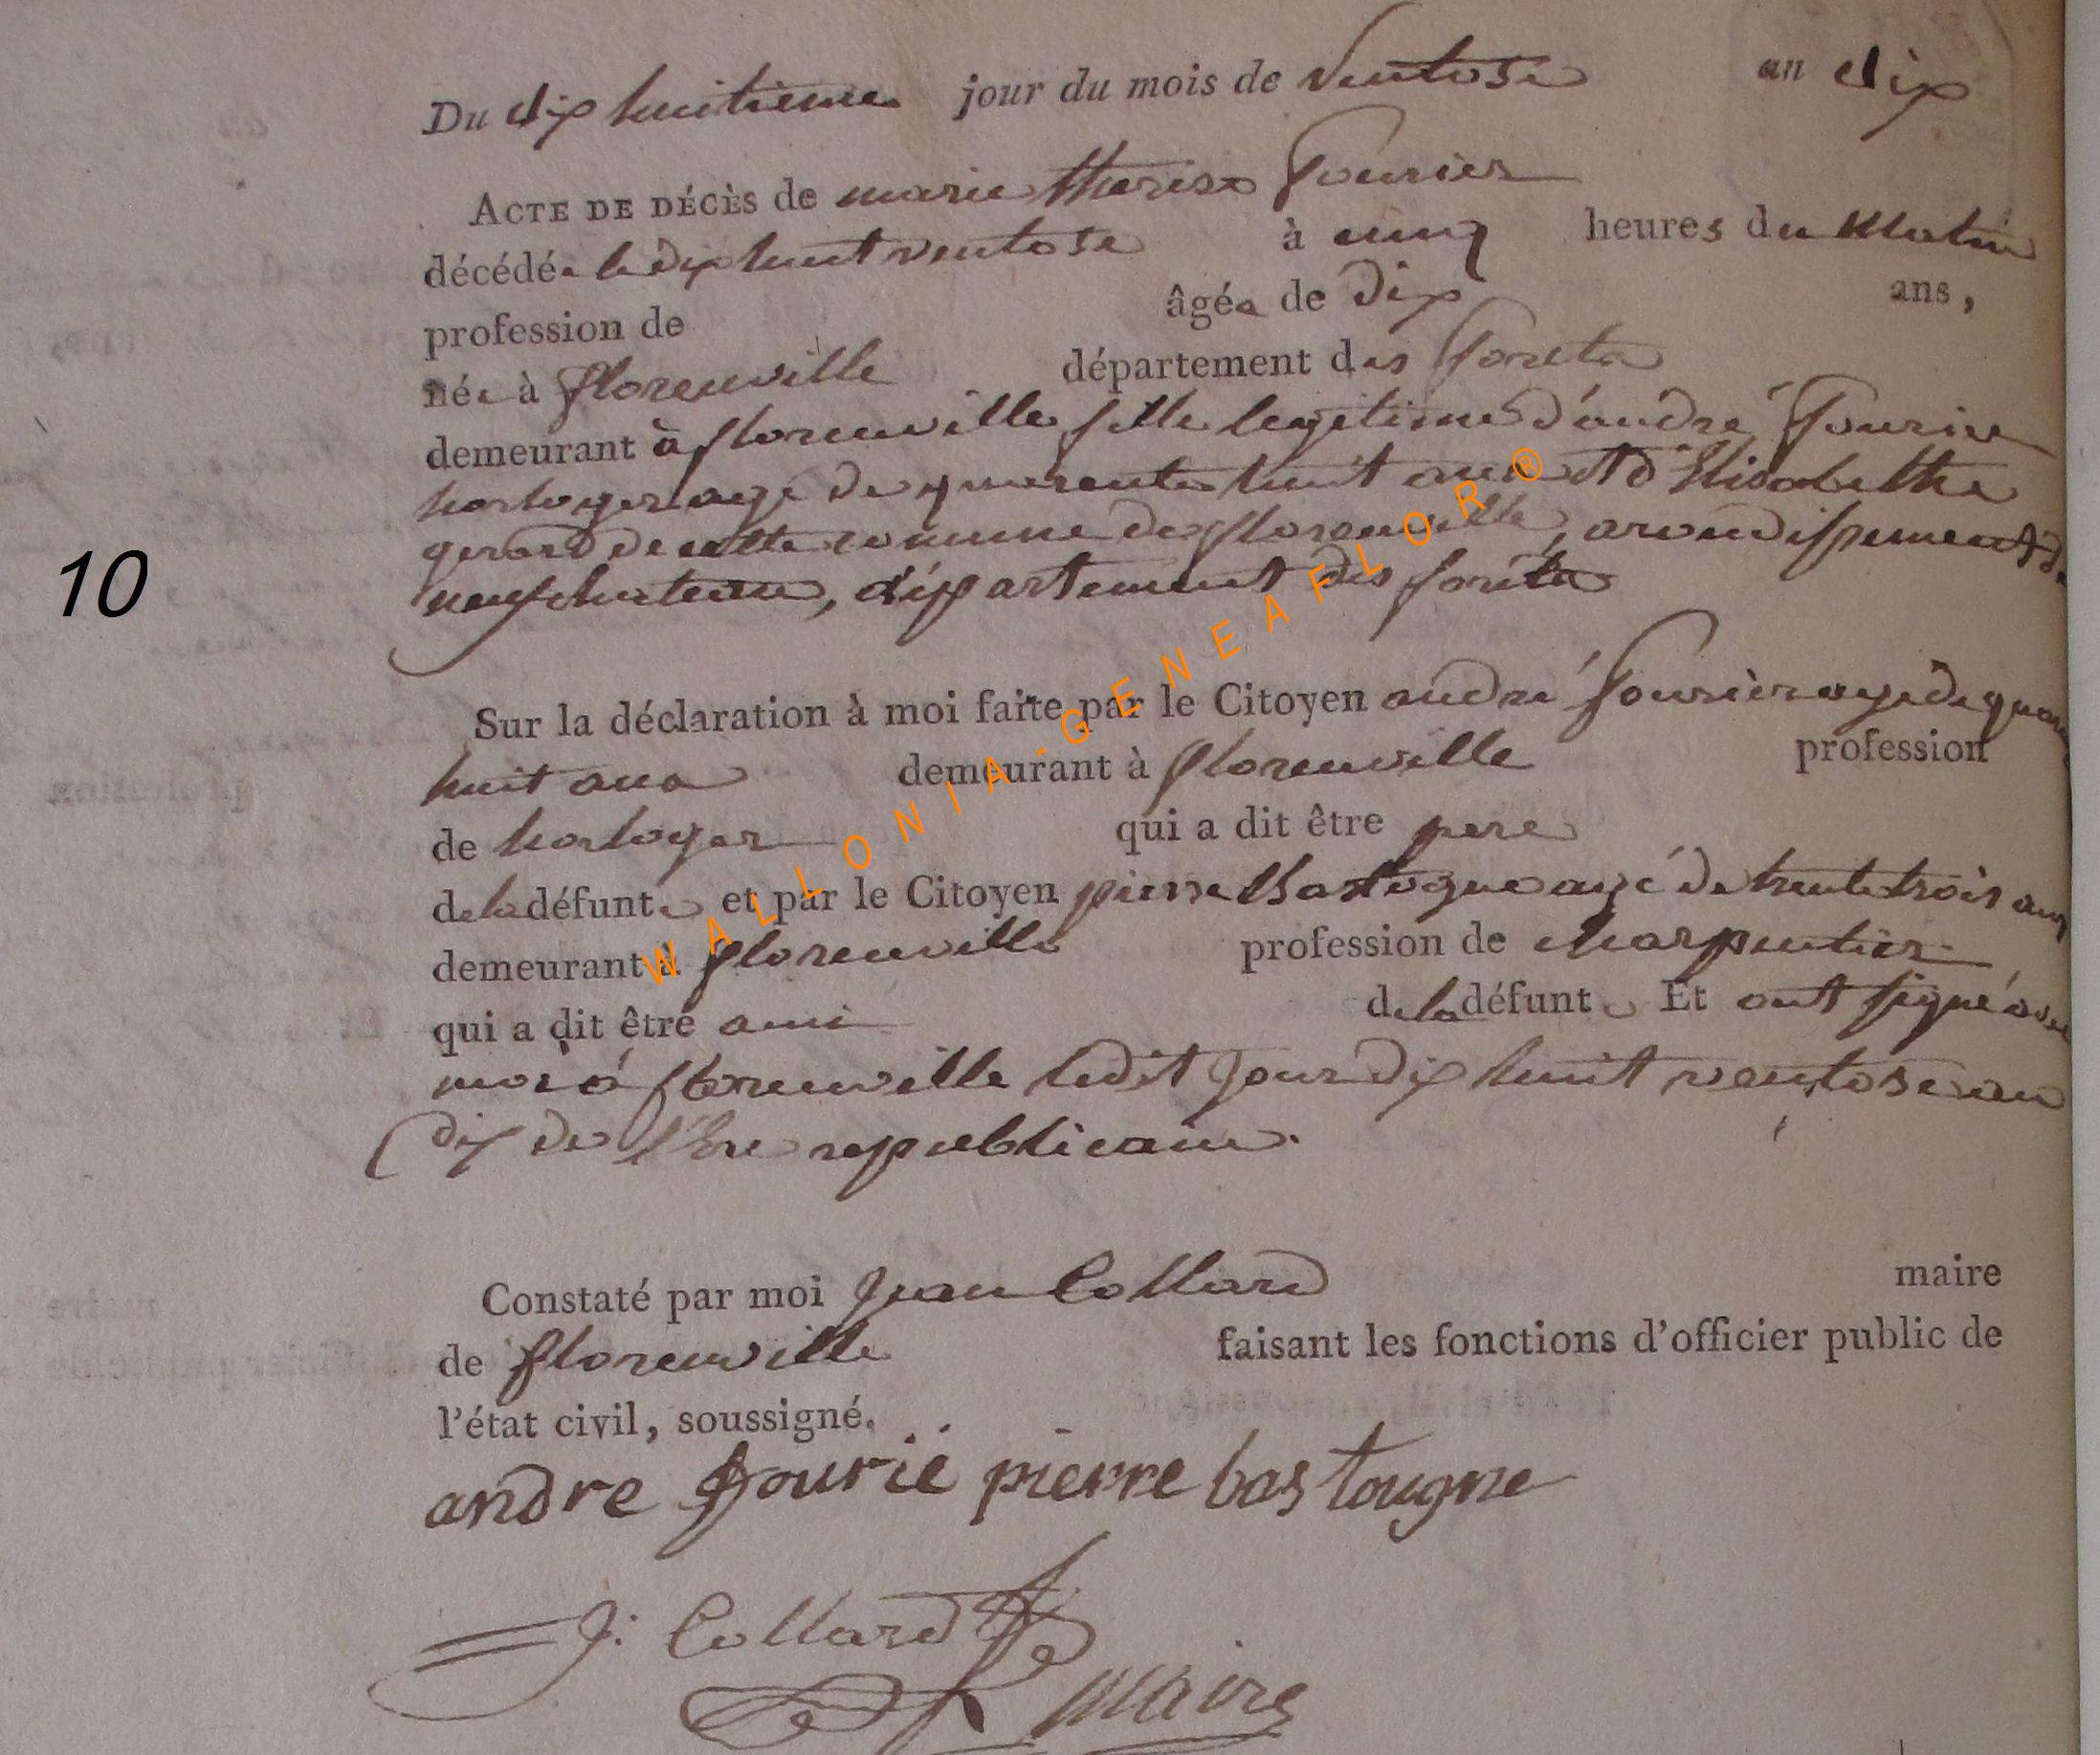 Du dix huitieme jour du mois de Ventose an dix
ACTE DE DÉCÈS de marie therese fourier
décédée le dix huit ventose à cinq heures du Matin
profession de âgée de dix ans,
née à florenville département des forets
demeurant à florenville fille legitime d'andré fourier
horloger agé de quarente huit ans et d'Elisabethe
gerard de cette commune de florenville, arondissement de
neufchateau, département des foréts
10
Sur la déclaration à moi faite par le Citoyen andré fourier agé de quar
huit ans demeurant à florenville profession
de horloger qui a dit être pere
de la défunte et par le Citoyen pierre Bastogne agé de trente trois ans
demeurant à florenville profession de charpentier
qui a dit être ami de la défunte Et ont signé avec
moi à florenville ledit jour dix huit ventose an
dix de l'Ere republicaine.
Constaté par moi Jean Collard maire
de florenville faisant les fonctions d'officier public de
l'état civil, soussigné.
andre fourié pierre bastougne
J: Collard
maire
WALLONIA-GENEAFLOR®